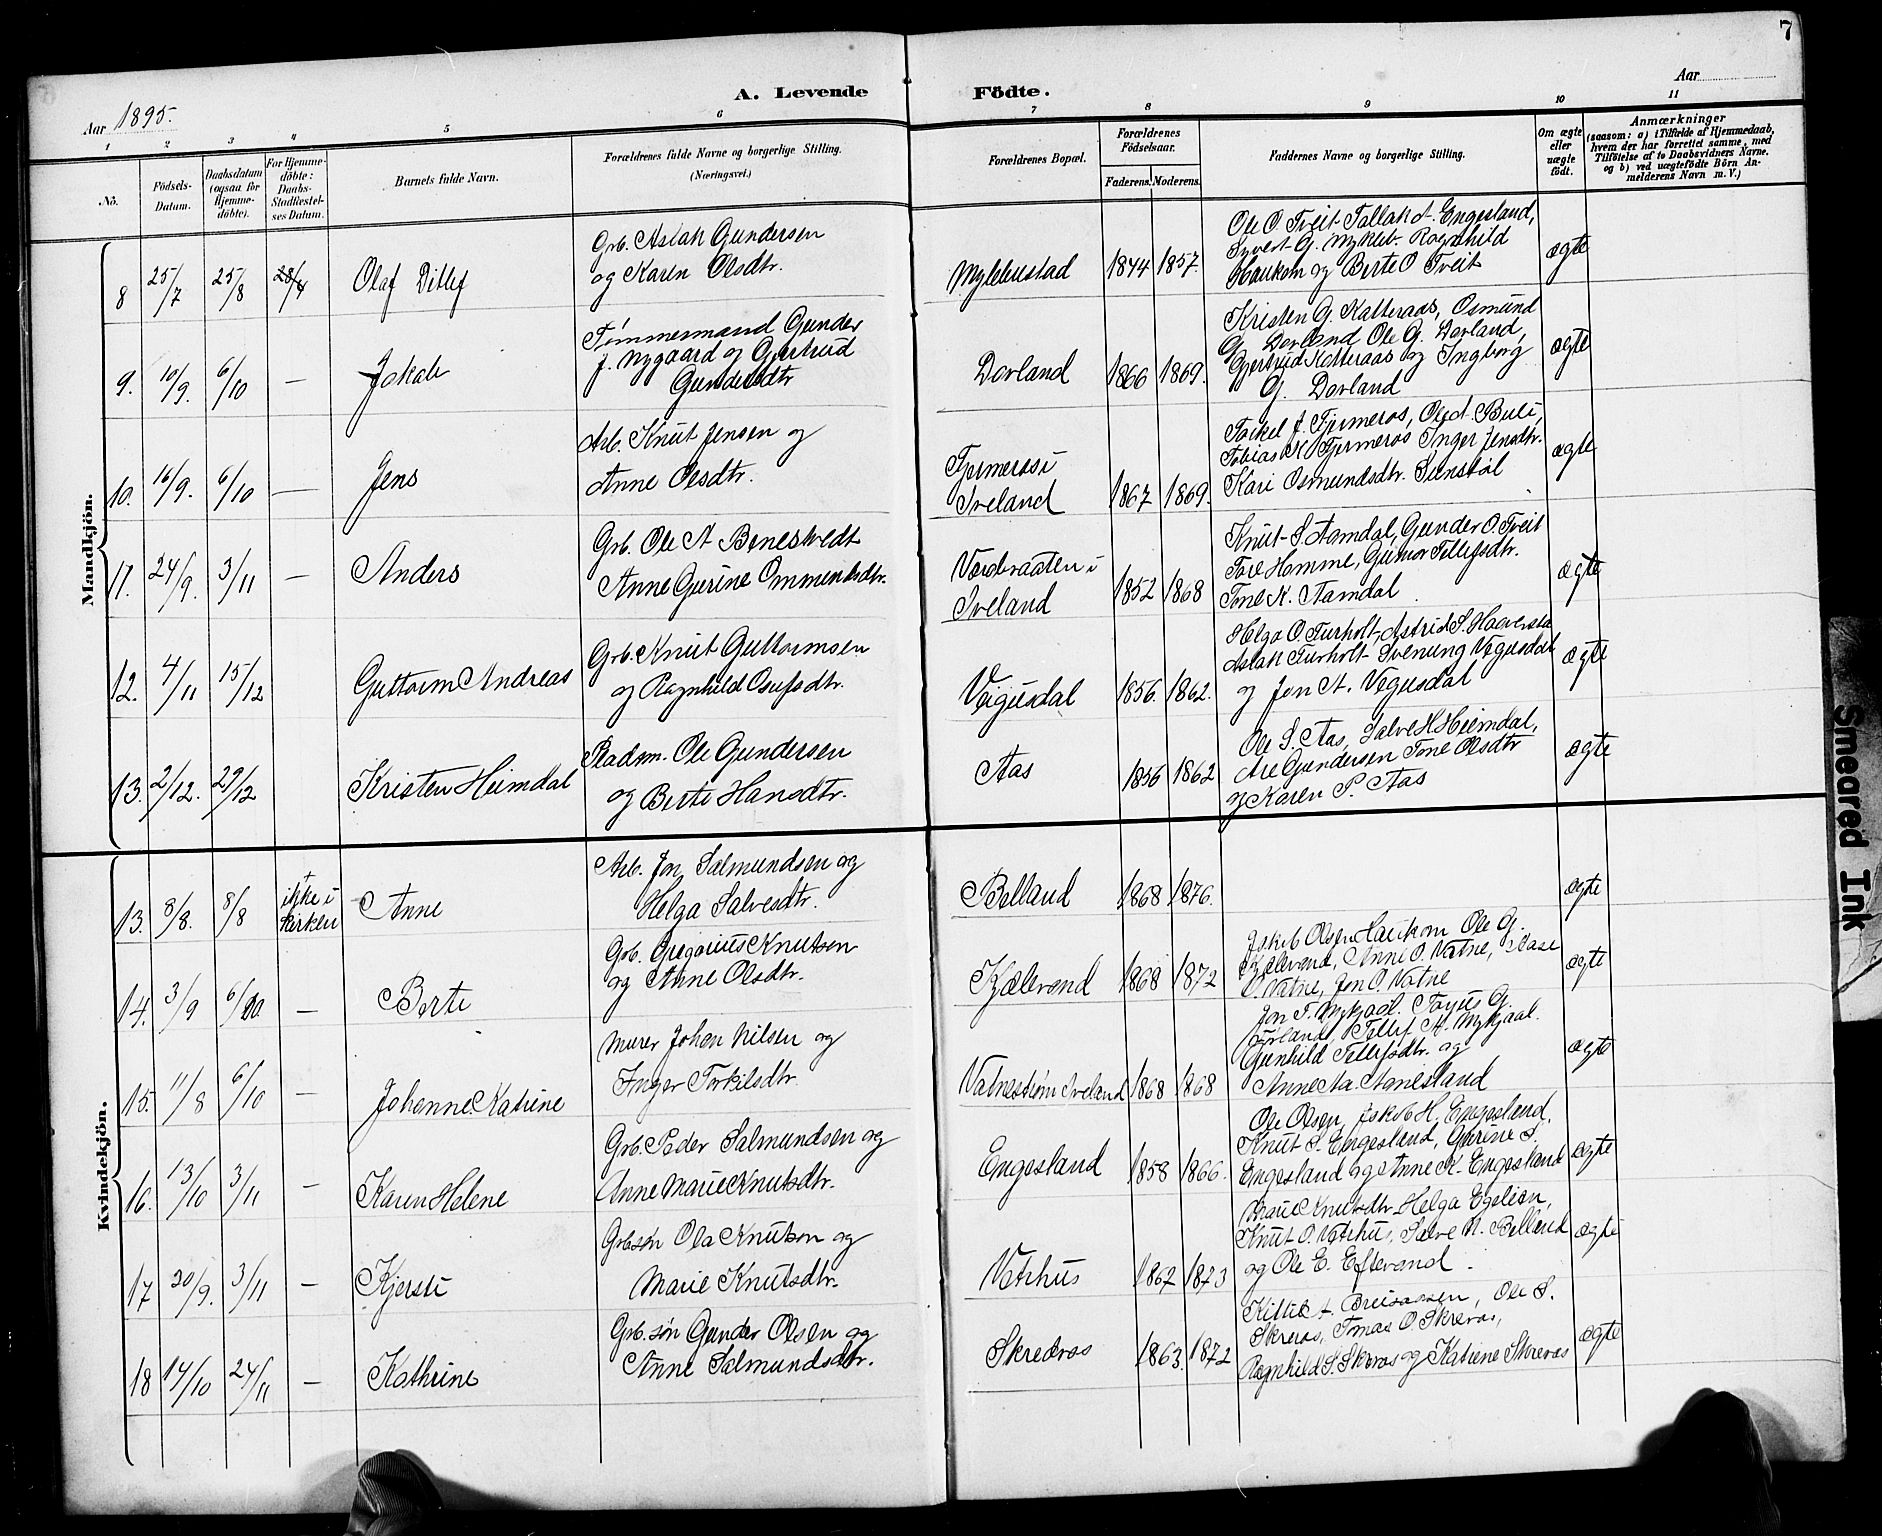 7
Aar 1895.
A. Levende Födte.
Aar
1 2 3 4 5 6 7 8 9 10 11
Nö.
Födsels-
Datum.
Daabsdatum
(ogsaa for
Hjemme-
döbte).
For Hjemme-
döbte:
Daabs-
Stadfæstel-
ses Datum.
Barnets fulde Navn.
Forældrenes fulde Navne og borgerlige Stilling.
(Næringsvei.)
Forældrenes Bopæl.
Forældrenes
Födselsaar.
Faderens. Moderens.
Faddernes Navne og borgerlige Stilling.
Om ægte
eller
uægte
födt.
Anmærkninger
(saasom: a) i Tilfælde af Hjemmedaab,
hvem der har forrettet samme, med
Tilföielse af to Daabsvidners Navne.
og b) ved uægtefödte Börn An-
melderens Navn m. V.)
Mandkjön.
8 25/7 25/8 Olaf Ditlef
Grb. Aslak Gundersen
og Karen Olsdtr.
Myklebustad 1844 1857.
Ole O. Tveit Tallak A. Engesland,
Syvert G. Mykleb. Ragnhild
Haukom og Berte O Tveit
ægte
9. 10/9. 6/10 — Jakob
Tømmermand Gunder
J. Nygaard og Gjertrud
Gundersdtr
Dovland 1866 1869.
Kristen G. Katteraas, Osmund
G. Dovland Ole G. Dovland,
Gjertrud Katteraas og Ingborg
G. Dovland
ægte
10. 16/9. 6/10 — Jens
Arb. Knut Jensen og
Anne Olsdtr.
Fjermeros i
Iveland 1867 1869.
Torkel J. Fjermeros, Ole A. Buli,
Tobias K Fjermeros Inger Jensdtr.
Kari Osmundsdtr. Sunstøl
ægte
11. 24/9. 3/11 — Anders
Grb. Ole A Benestvedt
Anne Gurine Ommundsdtr.
Iveland 1852 1868
Knut S Aamdal, Gunder O. Tveit
Tore Homme, Gunvor Tellefsdtr.
Tone K. Aamdal
ægte
12. 4/11 15/12 Guttorm Andreas
Grb. Knut Guttormsen
og Ragnhild Osufsdtr.
Veigusdal 1856. 1862.
Helga O. Furholt, Astrid S.
Aslak Furholt Svenung Vegusdal
og Jon A. Vegusdal
ægte
13. 2/12. 29/12 Kristen Heimdal
Pladsm. Ole Gundersen
og Berte Hansdtr.
Aas 1856 1862
Ole S. Aas, Salve H Heimdal,
Are Gundersen Tone Olsdtr
og Karen P. Aas
ægte
Kvindekjön.
13. 8/8. 8/8 ikke i
kirken Anne
Arb. Jon Salmundsen og
Helga Salvesdtr.
Belland 1868 1876.
ægte
14. 3/9 6/10. — Berte
Grb. Gregorius Knutsen
og Anne Olsdtr.
Kjælevand 1868 1872
Jakob Olsen Haukom Ole G.
Kjælevand, Anne O. Vatne, Aase
O. Vatne, Jon O. Vatne
ægte
15. 11/8 6/10 — Johanne Katrine
Murer Johan Nilsen og
Inger Torkilsdtr.
Vatnestrøm Iveland 1868 1868
Jon T. Mykjaal.
Tellef A. Mykjaal
Gunhild Tellefsdtr. og
ægte
16. 13/10 3/11 — Karen Helene
Grb. Peder Salmundsen og
Anne Marie Knutsdtr.
Engesland 1858 1866.
Ole Olsen, Jakob H. Engesland,
Knut S. Engesland, Gurine S.
Engesland og Anne K. Engesland
ægte
17 20/9. 3/11 — Kjersti
Grb.søn Ola Knutson og
Marie Knutsdtr.
Vatshus 1867 1873
Marie Knutsdtr. Helga Egelien,
Knut O. Vatshus, Salve N. Belland
og Ole E. Eftevand.
ægte
18 14/10 24/11 — Kathrine
Grb.søn Gunder Olsen og
Anne Salmundsdtr.
Skreros 1863. 1872
Kittil A. Breisaasen, Ole S.
Skreros, Tomas O. Skreros,
Ragnhild S. Skreros og Katrine Skreros
ægte
Smeared Ink